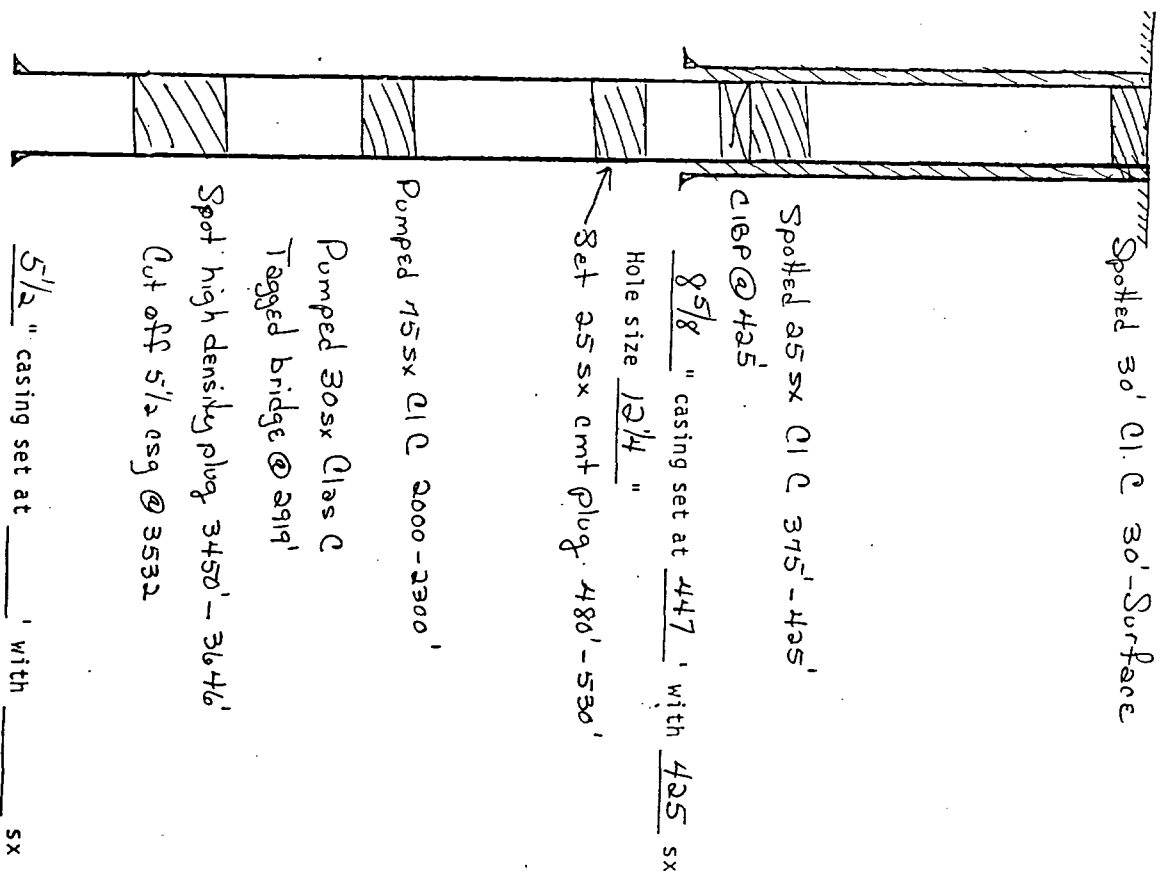 Spotted 30' Cl. C 30'-Surface
Spotted 25 sx Cl C 375'-425'
CIBP @ 425'
8 5/8 " casing set at 447 ' with 425 sx
Hole size 12 1/4 "
Set 25 sx cmt plug 480'-530'
Pumped 75 sx Cl C 2000-2300'
Pumped 30 sx Clas C
Tagged bridge @ 2919'
Spot high density plug 3450'-3646'
Cut off 5 1/2 csg @ 3532
5 1/2 " casing set at ______ ' with ______ sx